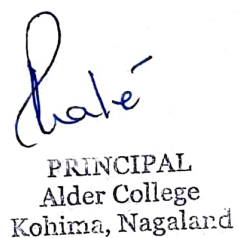 PRINCIPAL
Alder College
Kohima, Nagaland